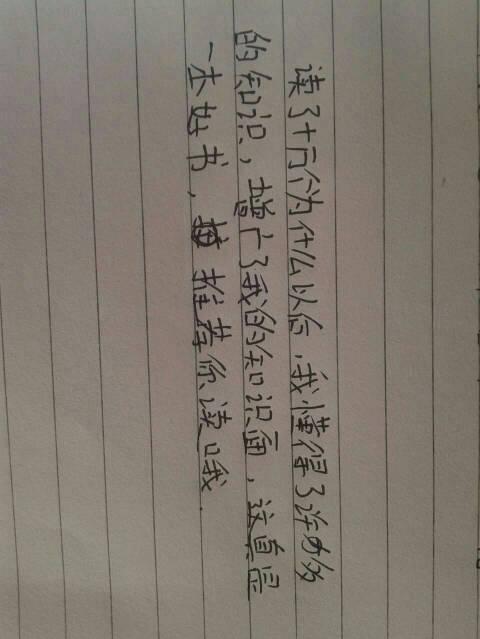 读了十万个为什么以后,我懂得了许多
的知识,增广了我的知识面,这真是
一本好书,推荐你读哦.